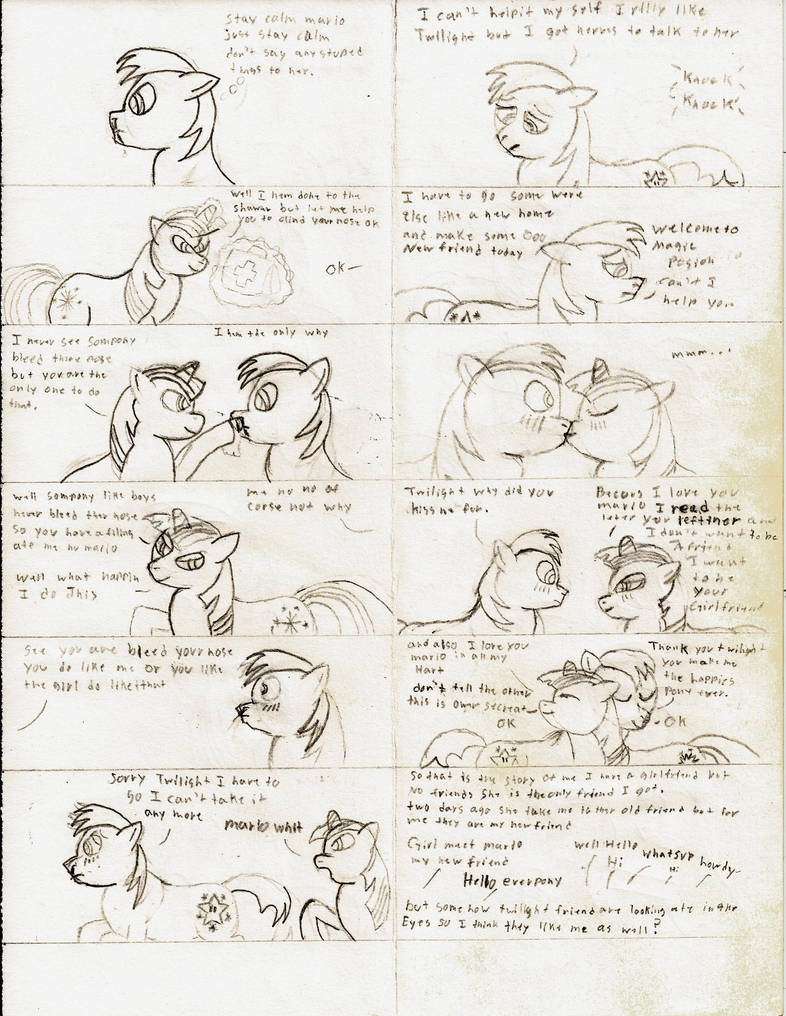 Stay calm mario
just stay calm
don't say any stuped
things to her.
well I hem done to the
shawar but let me help
you to clind your nose ok
OK—
I never see sompony
bleed there nose
but you are the
only one to do
that.
I hem the only why
well sompony like boys
never bleed ther nose
So you have a filing
ate me hu mario
well what happin
I do This
me no no of
corse not why
See you are bleed your nose
you do like me or you like
the girl do like that
Sorry Twilight I have to
go I can't take it
any more
mario whit
I can't help it my self I rlliy like
Twilight but I got nerves to talk to her
Knock
Knock
I have to go some were
else like a new home
and make some
New friend today
Welcome to
Magic
can't I
help you
mmm...
Twilight why did you
kiss me for.
Becaus I love you
mario I read the
leter you leftiner and
I don't want to be
A friend
I want
to be
your
Girlfriend
and also I love you
mario in all my
Hart
don't tell the other
this is owr secreat
OK
Thank you twilight
you make me
the happies
Pony ever.
OK
So that is the story of me I have a girlfriend but
No friends She is the only friend I got.
two days ago she take me to ther old friend but for
me they are my new friend
Girl meet mario
my new friend
Hello everpony
well Hello
Hi
whatsup
Hi
howdy
but some how twilight friend are looking ate in the
Eyes so I think they like me as well?